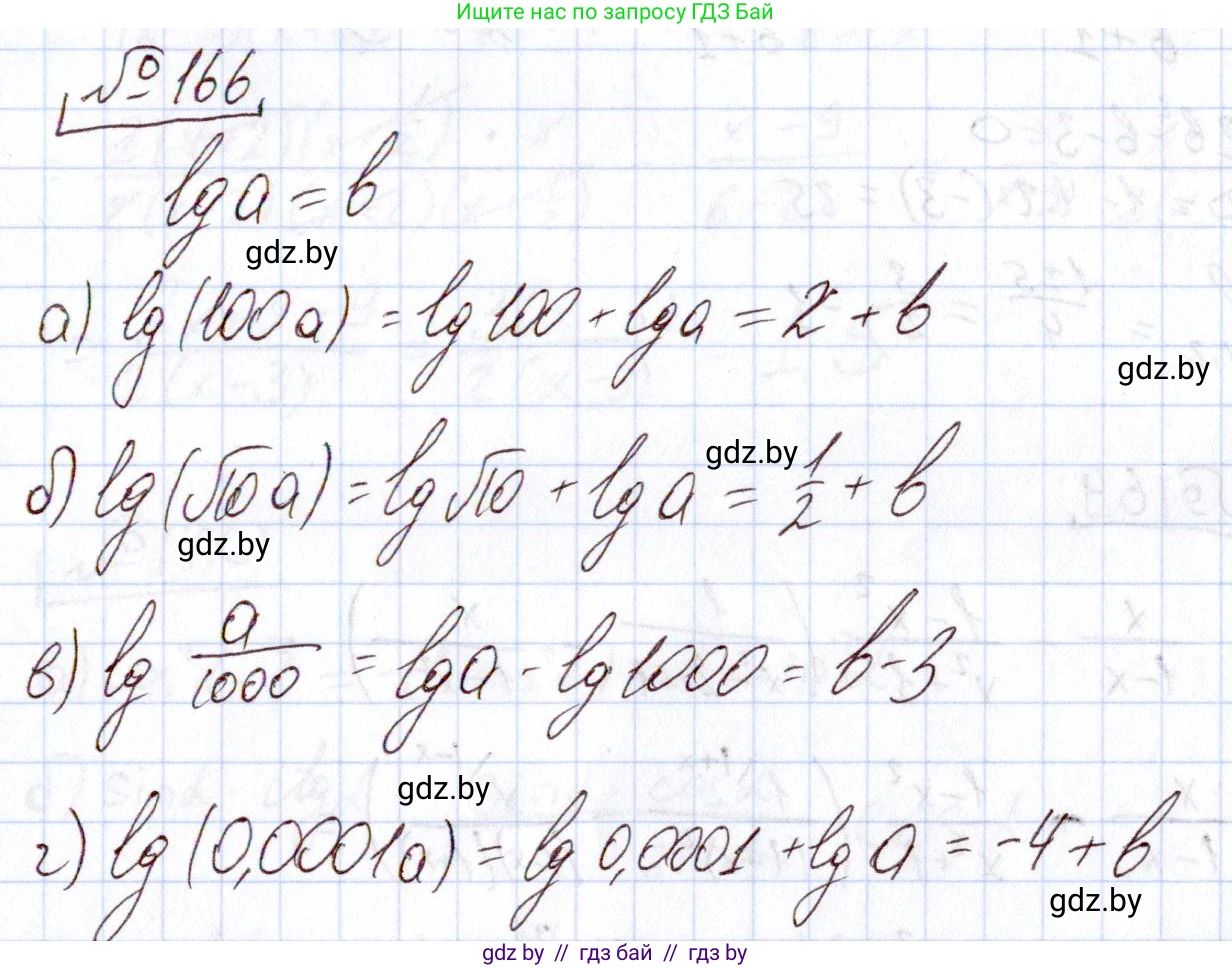 Ищите нас по запросу ГДЗ Бай
№ 166
lg a = b
gdz.by
а) lg (100 a) = lg 100 + lg a = 2 + b
gdz.by
б) lg (√10 a) = lg √10 + lg a = 1/2 + b
gdz.by
gdz.by
в) lg a/1000 = lg a - lg 1000 = b - 3
gdz.by
г) lg (0,0001a) = lg 0,0001 + lg a = -4 + b
gdz.by
gdz.by // гдз бай // гдз by